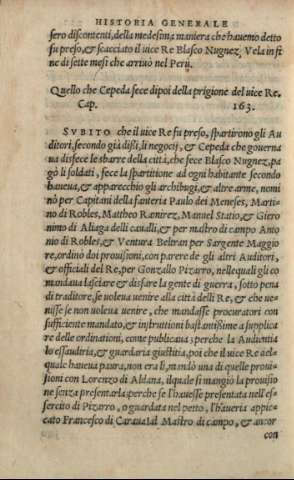 HISTORIA GENERALE
sero discontenti, della medesima maniera che hauemo detto
fu preso, & scacciato il uice Re Blasco Nugnez Vela in fi
ne di sette mesi che arriuò nel Perù.
Quello che Cepeda fece dipoi della prigione del uice Re.
Cap. 163.
SVBITO che il uice Re fu preso, spartirono gli Au
ditori, secondo già dissi, li negocij, & Cepeda che governa
ua disfece le sbarre della città, che fece Blasco Nugnez, pa
gò li soldati, fece la spartitione ad ogni habitante secondo
haueua, & apparecchio gli archibugi, & altre arme, nomi
nò per Capitani della fanteria Paulo dei Meneses, Marti-
no di Robles, Mattheo Ramirez, Manuel Statio, & Giero
nimo di Aliaga delli caualli, & per mastro di campo Anto
nio di Robles, & Ventura Beltran per Sargente Maggio
re, ordinò doi prouisioni, con parere de gli altri Auditori,
& officiali del Re, per Gonzallo Pizarro, nelle quali gli co
mandaua lasciare & disfare la gente di guerra, sotto pena
di traditore, se voleua uenire alla città delli Re, & che ue-
nisse se non uoleua uenire, che mandasse procuratori con
sufficiente mandato, & instruttioni bastantissime a supplica
re delle ordinationi, come publicaua; perche la Audientia
lo essaudiria, & guardaria giustitia, poi che il uice Re del-
quale haueua paura, non era lì, mandò una di quelle proui-
sioni con Lorenzo di Aldana, il quale si mangiò la prouisio
ne senza presentarla, perche se l'hauesse presentata nell'es-
sercito di Pizarro, o guardata nel petto, l'haueria appic-
cato Francesco di Carauaial Mastro di campo, & ancor
con